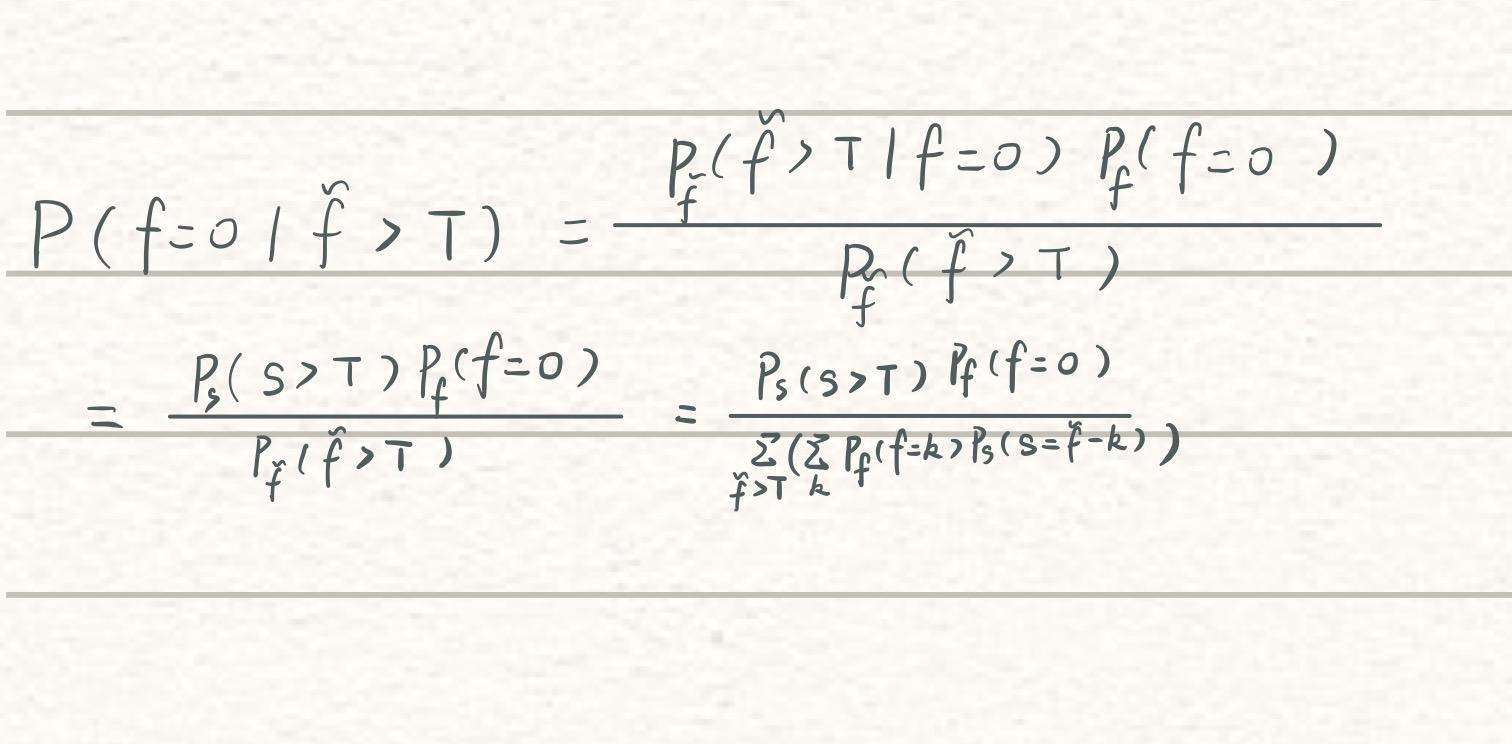 P(f=0 | f̃ > T) = \frac{P_{f̃}(f̃ > T | f=0) P_f(f=0)}{P_{f̃}(f̃ > T)}
= \frac{P_s(s>T) P_f(f=0)}{P_{f̃}(f̃ > T)} = \frac{P_s(s>T) P_f(f=0)}{\sum_{f̃>T}(\sum_k P_f(f=k) P_s(s=f̃-k))}